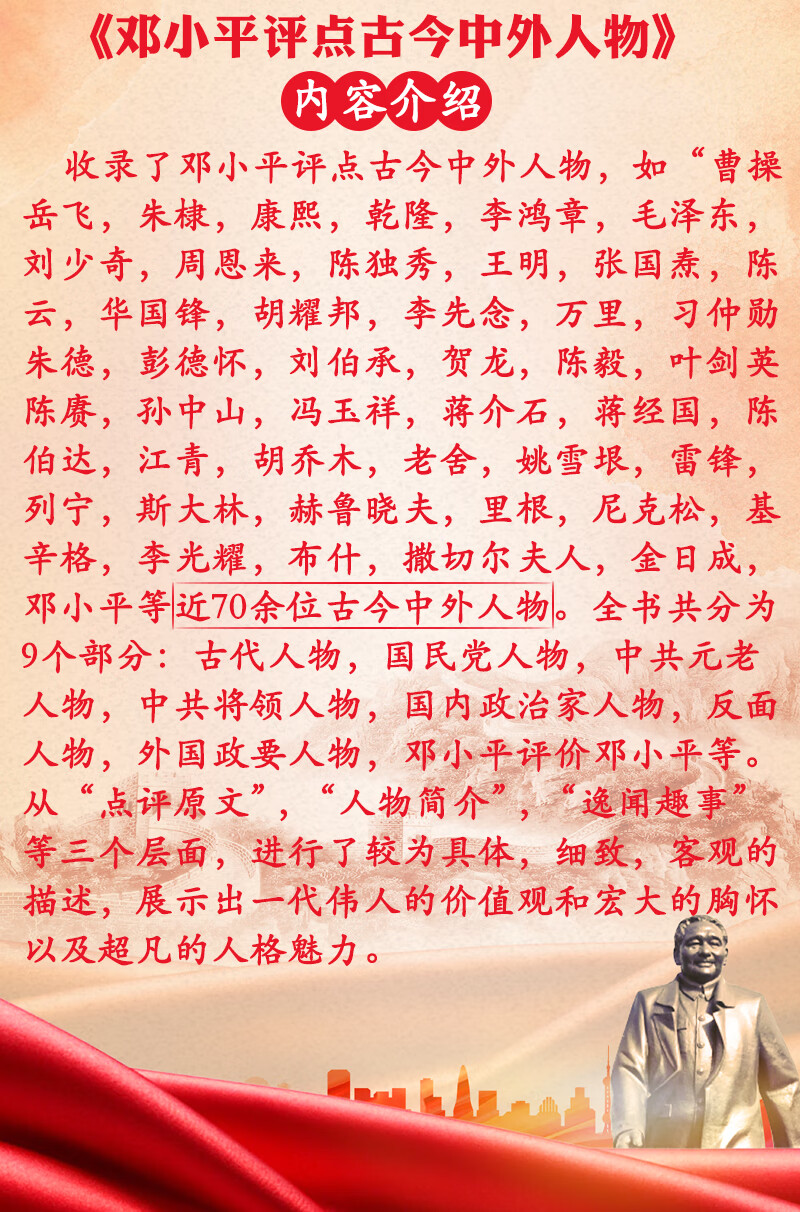 《邓小平评点古今中外人物》
内容介绍
收录了邓小平评点古今中外人物，如“曹操
岳飞，朱棣，康熙，乾隆，李鸿章，毛泽东，
刘少奇，周恩来，陈独秀，王明，张国焘，陈
云，华国锋，胡耀邦，李先念，万里，习仲勋
朱德，彭德怀，刘伯承，贺龙，陈毅，叶剑英
陈赓，孙中山，冯玉祥，蒋介石，蒋经国，陈
伯达，江青，胡乔木，老舍，姚雪垠，雷锋，
列宁，斯大林，赫鲁晓夫，里根，尼克松，基
辛格，李光耀，布什，撒切尔夫人，金日成，
邓小平等近70余位古今中外人物。全书共分为
9个部分：古代人物，国民党人物，中共元老
人物，中共将领人物，国内政治家人物，反面
人物，外国政要人物，邓小平评价邓小平等。
从“点评原文”，“人物简介”，“逸闻趣事”
等三个层面，进行了较为具体，细致，客观的
描述，展示出一代伟人的价值观和宏大的胸怀
以及超凡的人格魅力。